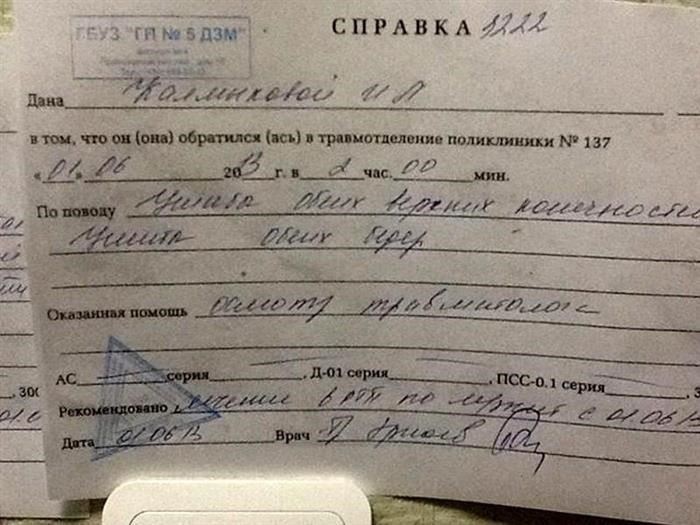 ГБУЗ "ГП № 5 ДЗМ"
СПРАВКА 1222
Дана Калмыковой И Л
в том, что он (она) обратился (ась) в травмотделение поликлиники № 137
«01» 06 2013 г. в 2 час. 00 мин.
По поводу Ушиба обеих верхних конечностей
Ушиба обеих бедер
Оказанная помощь осмотр травматолога
АС серия , Д-01 серия , ПСС-0.1 серия
Рекомендовано лечение в РТП по м/ж с 01.06.13
Дата 01.06.13 Врач